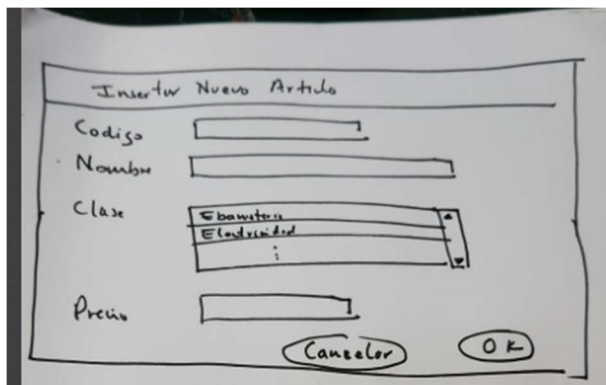 Insertar Nuevo Articulo
Codigo
Nombre
Clase
Ebanisteria
Electricidad
Precio
Cancelar
OK